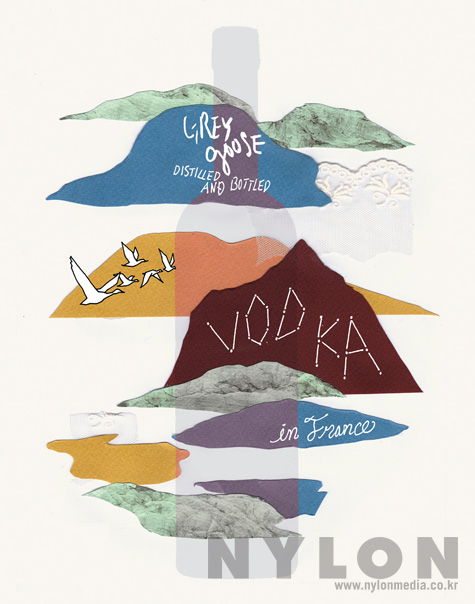 GREY
goose
DISTILLED
AND BOTTLED
VODKA
in France
NYLON
www.nylonmedia.co.kr